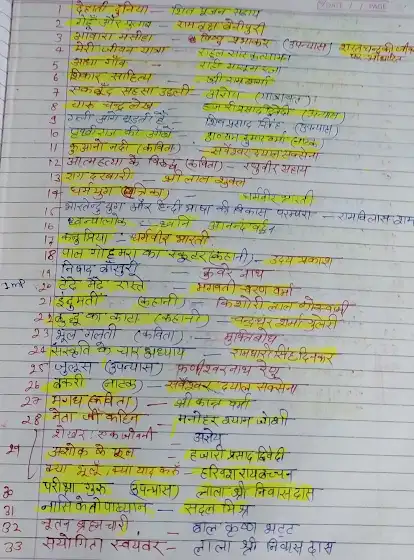 1 देहाती दुनिया — शिव पूजन सहाय
2 गेहूँ और गुलाब — रामवृक्ष बेनीपुरी
3 आवारा मसीहा — विष्णु प्रभाकर (उपन्यास) शरतचन्द्र की जीवनी पर आधारित
4 मेरी जीवन यात्रा — राहुल सांकृत्यायन
5 आधा गाँव — राही मासूम रजा
6 शिकार साहित्य — श्री राम शर्मा
7 एक बूँद सहसा उछली — अज्ञेय
8 चारु चन्द्र लेख — हजारी प्रसाद द्विवेदी (उपन्यास)
9 गली आगे मुड़ती है — शिवप्रसाद सिंह (उपन्यास)
10 पृथ्वीराज की आँखें — रामकुमार वर्मा
11 कुआनो नदी (कविता) — सर्वेश्वर दयाल सक्सेना
12 आत्महत्या के विरुद्ध (कविता) — रघुवीर सहाय
13 राग दरबारी — श्री लाल शुक्ल
14 धर्म युग — धर्मवीर भारती
15 भारतेन्दु युग और हिन्दी भाषा की विकास परम्परा — रामविलास शर्मा
16 ध्वन्यालोक — आनन्द वर्धन
17 कनुप्रिया — धर्मवीर भारती
18 पाल गोमरा का स्कूटर (कहानी) — उदय प्रकाश
19 निषाद बाँसुरी — कुबेर नाथ
Imp 20 टेढ़े मेढ़े रास्ते — भगवती चरण वर्मा
21 इंदुमती (कहानी) — किशोरी लाल गोस्वामी
22 बुद्धू का काँटा (कहानी) — चन्द्रधर शर्मा गुलेरी
23 भूल गलती (कविता) — मुक्तिबोध
24 संस्कृति के चार अध्याय — रामधारी सिंह दिनकर
25 जुलूस (उपन्यास) — फणीश्वर नाथ रेणु
26 बकरी (नाटक) — सर्वेश्वर दयाल सक्सेना
27 मगध (कविता) — श्री कान्त वर्मा
28 नेता जी कहिन — मनोहर श्याम जोशी
शेखर: एक जीवनी — अज्ञेय
29 अशोक के फूल — हजारी प्रसाद द्विवेदी
क्या भूलूँ क्या याद करूँ — हरिवंशराय बच्चन
30 परीक्षा गुरु (उपन्यास) लाला श्री निवास दास
31 नासिकेतोपाख्यान — सदल मिश्र
32 नूतन ब्रह्मचारी — बाल कृष्ण भट्ट
33 संयोगिता स्वयंवर — लाला श्री निवास दास